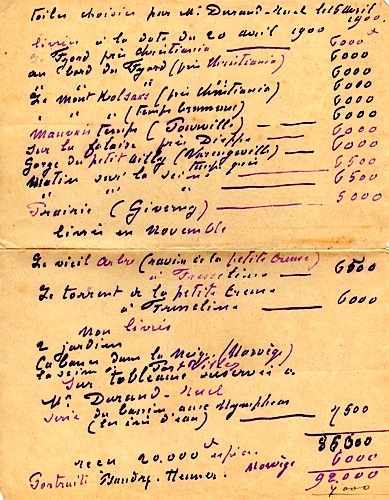 toiles choisies par Mr Durand-Ruel le 15 avril 1900
livrées à la date du 20 avril 1900
Le Fjord près Christiania 6000
au bord du Fjord (près Christiania) 6000
" " " 6000
Le Mont Kolsaas (près Christiania) 6000
" " (temps brumeux) 6000
Mauvais temps (Pourville) 6000
Sur la falaise près Dieppe 6000
Gorge du petit Ailly (Varengeville) 6000
Matin sur la Seine temps gris 6500
" " " 6500
Prairie (Giverny) 5000
livrés en Novembre
Le vieil arbre (ravin de la petite Creuse)
à Fresselines 6500
Le torrent de la petite Creuse
à Fresselines 6000
Non livrés
2 jardins
Cabanes dans la Neige (Norvège)
la Seine à Port Villez
Sur tableaux réservés à
Mr Durand-Ruel
Série du bassin aux Nympheas 7500
(les iris d'eau)
86000
reçu 20.000 f espèces Norvège 6000
92,000
Portraits
7000